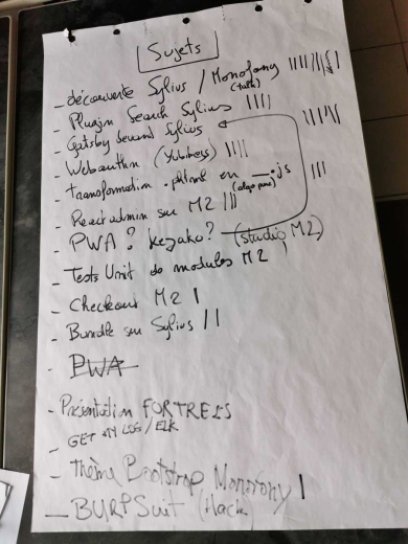 Sujets
- découverte Sylius / Monofony
(talk)
- Plugin Search Sylius
- Gatsby Sylius
- Webauthn (Yubikeys)
- transformation .phtml en .js
(algo pure)
- React admin sur M2
- PWA ? kezako? (studio M2)
- Tests Unit de modules M2
- Checkout M2
- Bundle sur Sylius
- PWA
- Présentation FORTRESS
- GET MY LOG / ELK
- Thème Bootstrap Monofony
- BURPSuit (Hack